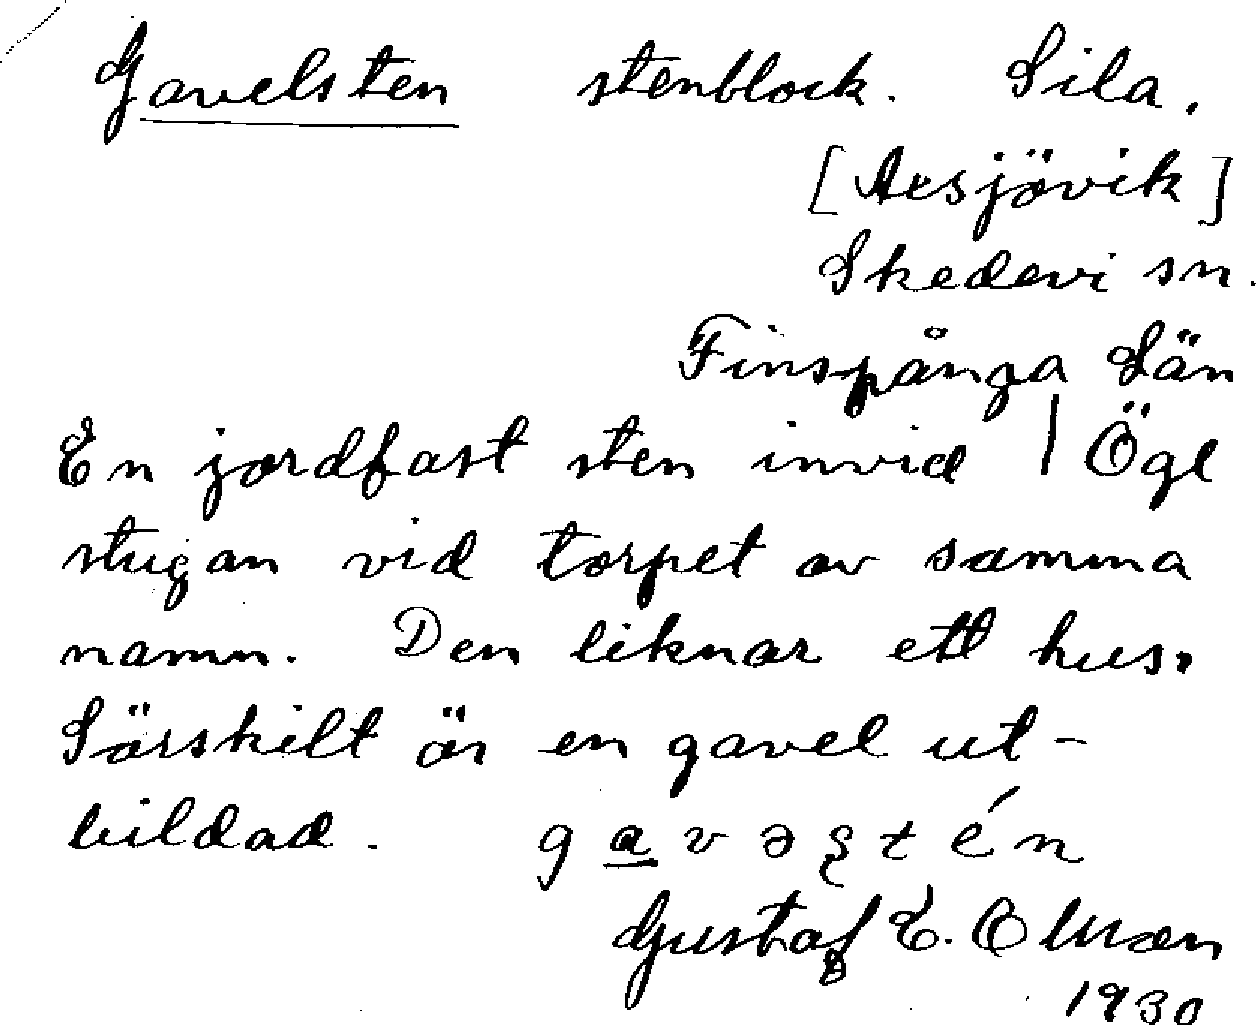 Gavelsten stenblock. Sila.
[Aesjövik]
Skedevi sn.
Finspånga Län
En jordfast sten invid | Ögl
stugan vid torpet av samma
namn. Den liknar ett hus.
Särskilt är en gavel ut-
bildad. gavəʂtén
Gustaf E. Olsson
1930